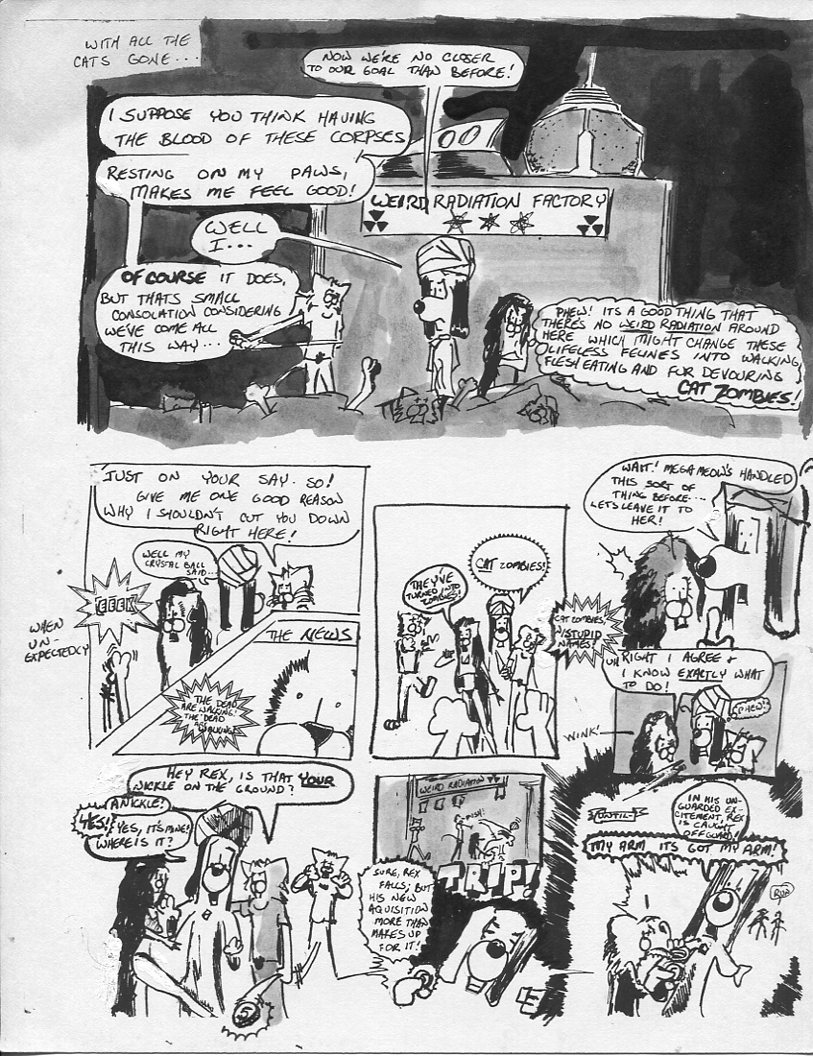 WITH ALL THE
CATS GONE...
NOW WE'RE NO CLOSER
TO OUR GOAL THAN BEFORE!
I SUPPOSE YOU THINK HAVING
THE BLOOD OF THESE CORPSES
RESTING ON MY PAWS,
MAKES ME FEEL GOOD!
WELL
I...
OF COURSE IT DOES,
BUT THATS SMALL
CONSOLATION CONSIDERING
WE'VE COME ALL
THIS WAY...
WEIRD RADIATION FACTORY
PHEW! ITS A GOOD THING THAT
THERE'S NO WEIRD RADIATION AROUND
HERE WHICH MIGHT CHANGE THESE
LIFELESS FELINES INTO WALKING
FLESH EATING AND FUR DEVOURING
CAT ZOMBIES!
JUST ON YOUR SAY. SO!
GIVE ME ONE GOOD REASON
WHY I SHOULDN'T CUT YOU DOWN
RIGHT HERE!
WELL MY
CRYSTAL BALL
SAID...
EEEK
WHEN
UN-
EXPECTEDLY
THE NEWS
THE DEAD
ARE WALKING!
THE DEAD
ARE
WALKING!
THEY'VE
TURNED INTO
ZOMBIES!
CAT ZOMBIES!
WAIT! MEGAMEOW'S HANDLED
THIS SORT OF
THING BEFORE...
LETS LEAVE IT TO
HER!
CAT ZOMBIES,
STUPID
NAMES!
UH
RIGHT I AGREE &
I KNOW EXACTLY WHAT
TO DO!
PHEW!
WINK!
HEY REX, IS THAT YOUR
NICKLE ON THE GROUND?
A NICKLE!
YES!
YES, IT'S MINE!
WHERE IS IT?
5
WEIRD RADIATION
PUSH!
TRIP!
SURE, REX
FALLS, BUT
HIS NEW
AQUISITION
MORE THAN
MAKES UP
FOR IT!
UNTIL-
IN HIS UN-
GUARDED EX-
CITEMENT, REX
IS CAUGHT
OFFGUARD!
MY ARM ITS GOT MY ARM!